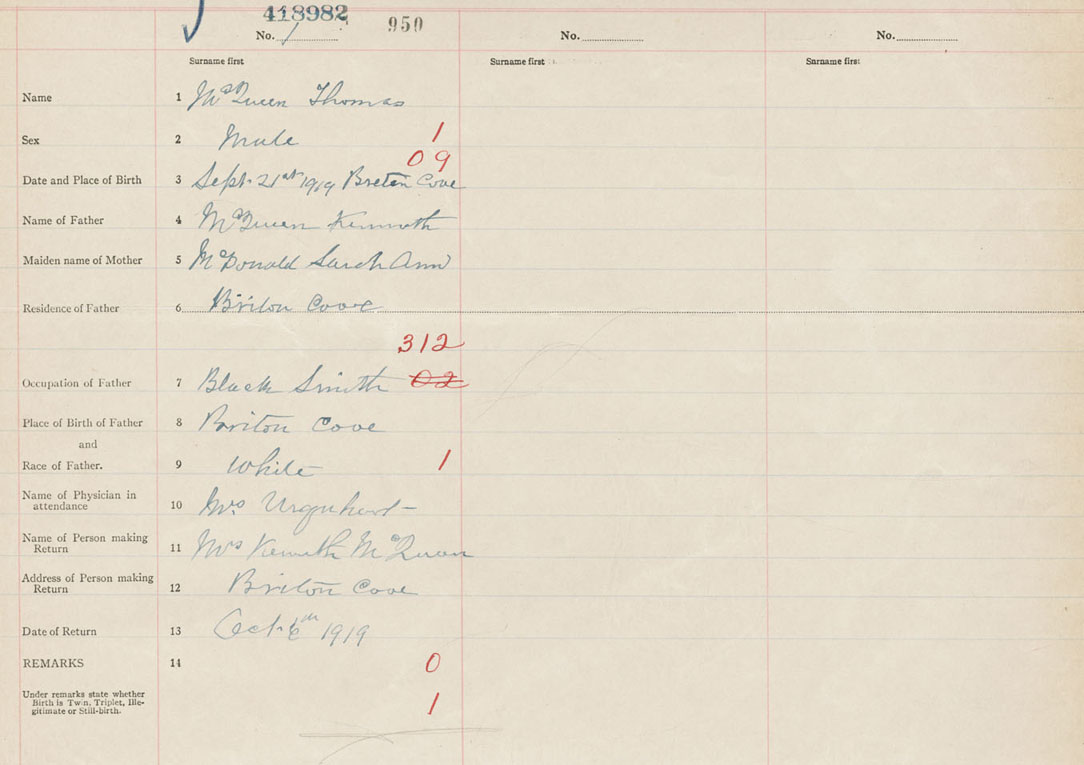 418982 950
No. 1 No. No.
Surname first Surname first Surname first
Name 1 McQueen Thomas
Sex 2 Male 1
09
Date and Place of Birth 3 Sept. 21st 1919 Breton Cove
Name of Father 4 McQueen Kenneth
Maiden name of Mother 5 McDonald Sarah Ann
Residence of Father 6 Briton Cove
312
Occupation of Father 7 Black Smith 02
Place of Birth of Father 8 Briton Cove
and
Race of Father. 9 White 1
Name of Physician in
attendance 10 Mrs Urquhart
Name of Person making
Return 11 Mrs Kenneth McQueen
Address of Person making
Return 12 Briton Cove
Date of Return 13 Oct. 6th 1919
REMARKS 14 0
Under remarks state whether
Birth is Twin, Triplet, Ille-
gitimate or Still-birth. 1